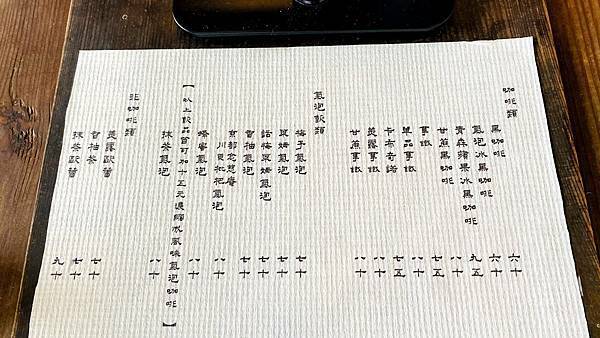 咖啡類
黑咖啡 六十
氮泡冰黑咖啡 六十
青森蘋果冰黑咖啡 九五
甘蔗黑咖啡 八十
拿鐵 七五
單品拿鐵 八十
卡布奇諾 七五
拿鐵 八十
甘蔗拿鐵 八十
氮泡飲類
梅子氮泡 七十
翠姆氮泡 七十
話梅翠姆氮泡 七十
香柚氮泡 七十
京都念慈庵
川貝枇杷氮泡 八十
蜂蜜氮泡 八十
抹茶氮泡 八十
【以上飲品皆可加十五元濃縮成風味氮泡咖啡】
非咖啡類
歐蕾 七十
香柚茶 七十
抹茶歐蕾 九十